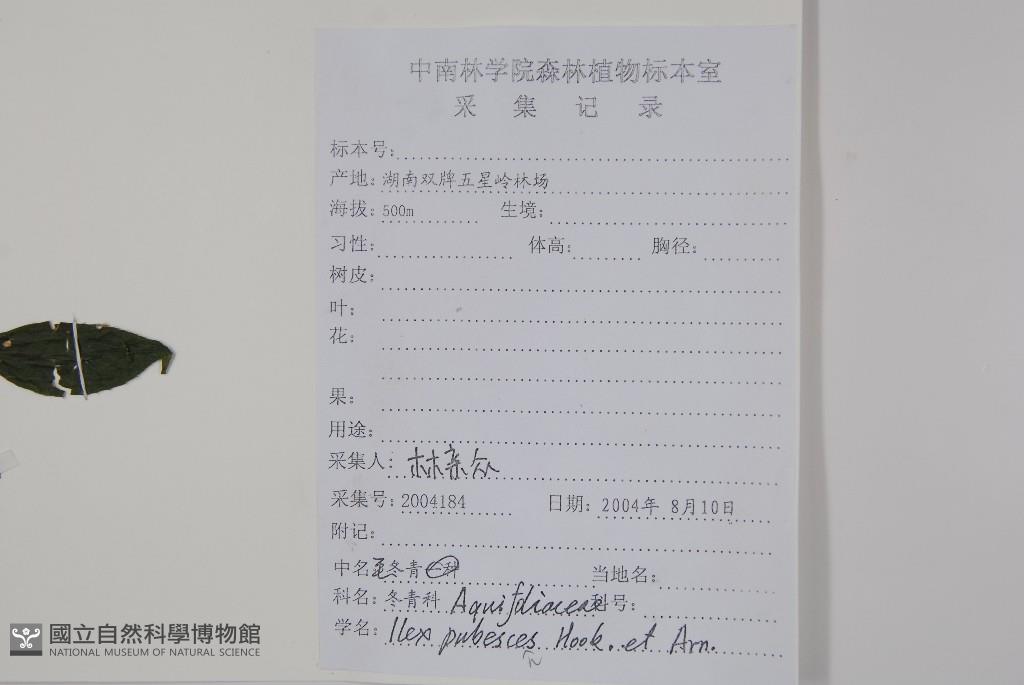 中南林学院森林植物标本室
采集记录
标本号:
产地: 湖南双牌五星岭林场
海拔: 500m 生境:
习性: 体高: 胸径:
树皮:
叶:
花:
果:
用途:
采集人: 林亲众
采集号: 2004184 日期: 2004年 8月10日
附记:
中名: 冬青 当地名:
科名: 冬青科 Aquifoliaceae 科号:
学名: Ilex pubesces Hook. et Arn.
國立自然科學博物館
NATIONAL MUSEUM OF NATURAL SCIENCE